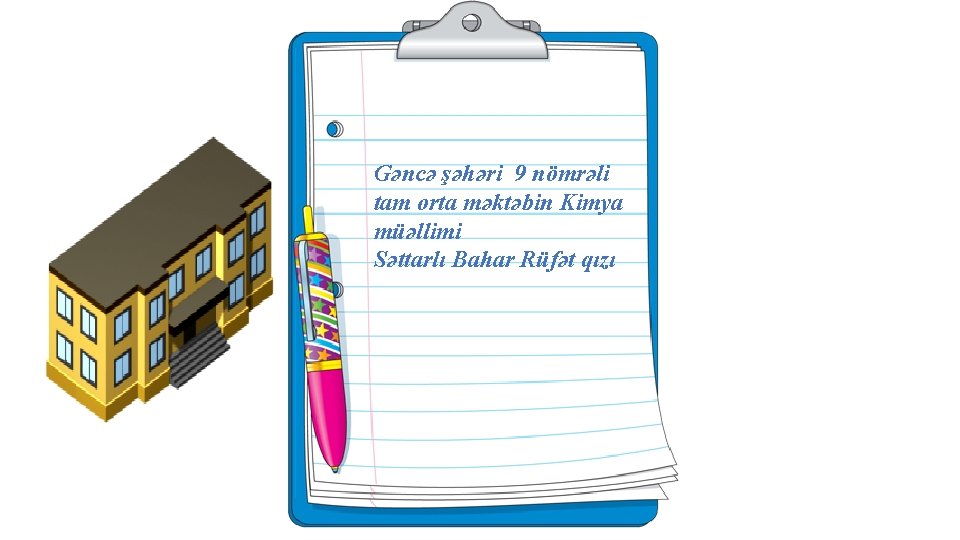 Gəncə şəhəri 9 nömrəli
tam orta məktəbin Kimya
müəllimi
Səttarlı Bahar Rüfət qızı